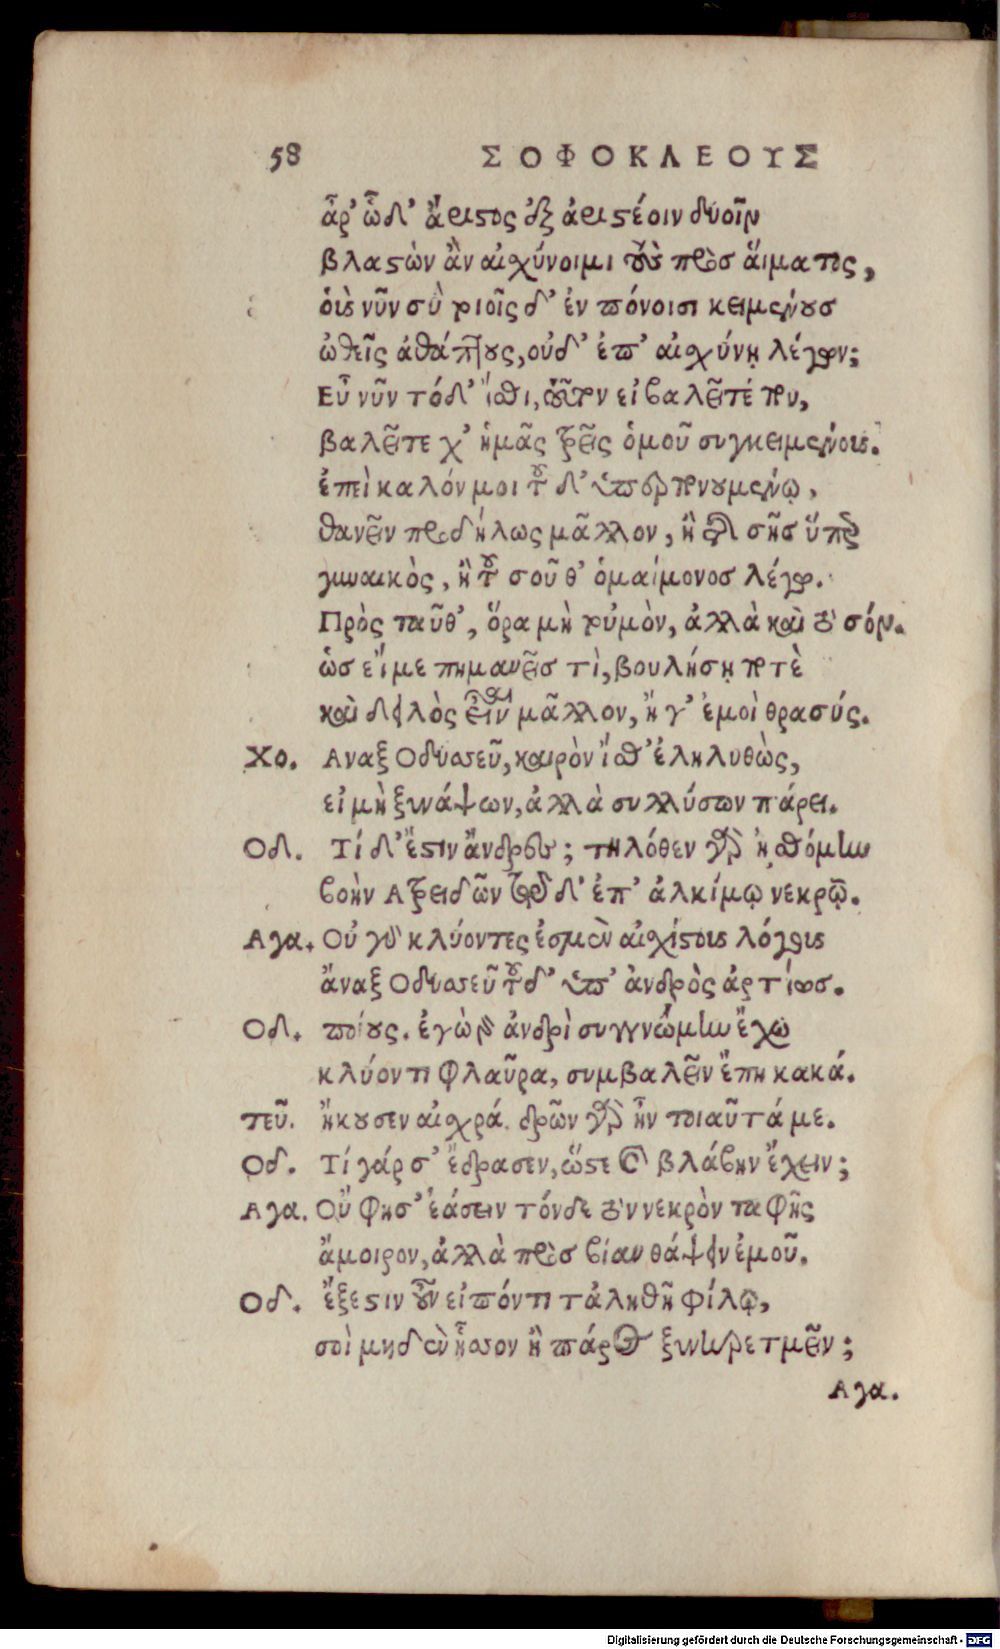 58 ΣΟΦΟΚΛΕΟΥΣ
ἆρ' ὧδ' ἄριστος ἐξ ἀριστέοιν δυοῖν
βλαστὼν ἂν αἰχύνοιμι τοὺς πρὸσ ἅιματος,
οἱὺς νῦν σὺ τοιοῖς δ' ἐν πόνοισι κειμένουσ
ὠθεῖς ἀθάπτους, οὐδ' ἐπ' αἰσχύνῃ λέγων;
Εὖ νῦν τόδ' ἴσθι, τοῦτον εἰ βαλεῖτέ που,
βαλεῖτε χ' ἡμᾶς τρεῖς ὁμοῦ συγκειμένους.
ἐπεὶ καλόν μοι τοῦ δ' ὑπερπονουμένῳ,
θανεῖν προδήλως μᾶλλον, ἢ τῆς σῆσ ὕπερ
γυναικὸς, ἢ τοῦ σοῦ θ' ὁμαίμονοσ λέγω.
Πρὸς ταῦθ', ὅρα μὴ τοὐμὸν, ἀλλὰ καὶ τὸ σόν.
ὡσ εἴ με πημανεῖσ τὶ, βουλήσῃ ποτὲ
καὶ δειλὸς εἶναι μᾶλλον, ἤ γ' ἐμοὶ θρασύς.
Χο. Αναξ Οδυσσεῦ, καιρὸν ἴσθ' ἐληλυθὼς,
εἰ μὴ ξυνάψων, ἀλλὰ συλλύσων πάρει.
Οδ. Τί δ' ἔστιν ἄνδρες; τηλόθεν γὰρ ἠσθόμην
βοὴν Ατρειδῶν τῷδ' ἐπ' ἀλκίμῳ νεκρῷ.
Αγα. Οὐ γὰρ κλύοντες ἐσμὲν αἰχίστους λόγους
ἄναξ Οδυσσεῦ τοῦδ' ὑπ' ἀνδρὸς ἀρτίωσ.
Οδ. ποίους. ἐγὼ γὰρ ἀνδρὶ συγγνώμην ἔχω
κλύοντι φλαῦρα, συμβαλεῖν ἔπη κακά.
τεῦ. ἤκουσεν αἰσχρά. δρῶν γὰρ ἦν τοιαῦτά με.
Οδ. Τί γάρ σ' ἔδρασεν, ὥστε καὶ βλάβην ἔχειν;
Αγα. Οὔ φησ' ἐάσειν τόνδε τὸν νεκρὸν ταφῆς
ἄμοιρον, ἀλλὰ πρὸσ βίαν θάψειν ἐμοῦ.
Οδ. ἔξεστιν οὖν εἰπόντι τἀληθῆ φίλῳ,
σοὶ μηδὲν ἧσσον ἢ πάρος ξυνηρετμεῖν;
Αγα.
Digitalisierung gefördert durch die Deutsche Forschungsgemeinschaft - DFG